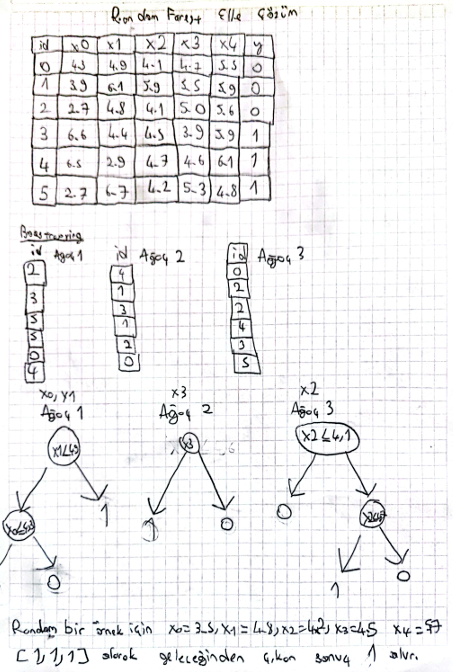 Random Forest Elle Çözüm
id x0 x1 x2 x3 x4 y
0 4.3 4.9 4.1 4.7 5.5 0
1 3.9 6.1 5.9 5.5 5.9 0
2 2.7 4.8 4.1 5.0 5.6 0
3 6.6 4.4 4.5 3.9 5.9 1
4 6.5 2.9 4.7 4.6 6.1 1
5 2.7 6.7 4.2 5.3 4.8 1
id Ağaç 1
2
3
5
5
0
4
id Ağaç 2
4
1
3
1
2
0
id Ağaç 3
0
2
2
4
3
5
x0, x1
Ağaç 1
1
0
x3
Ağaç 2
x3
1
0
x2
Ağaç 3
x2≤4,1
0
1
0
Random bir örnek için x0=3.5, x1=4.8, x2=4.2, x3=4.5 x4=57
[1,1,1] olarak geleceğinden çıkan sonuç 1 olur.